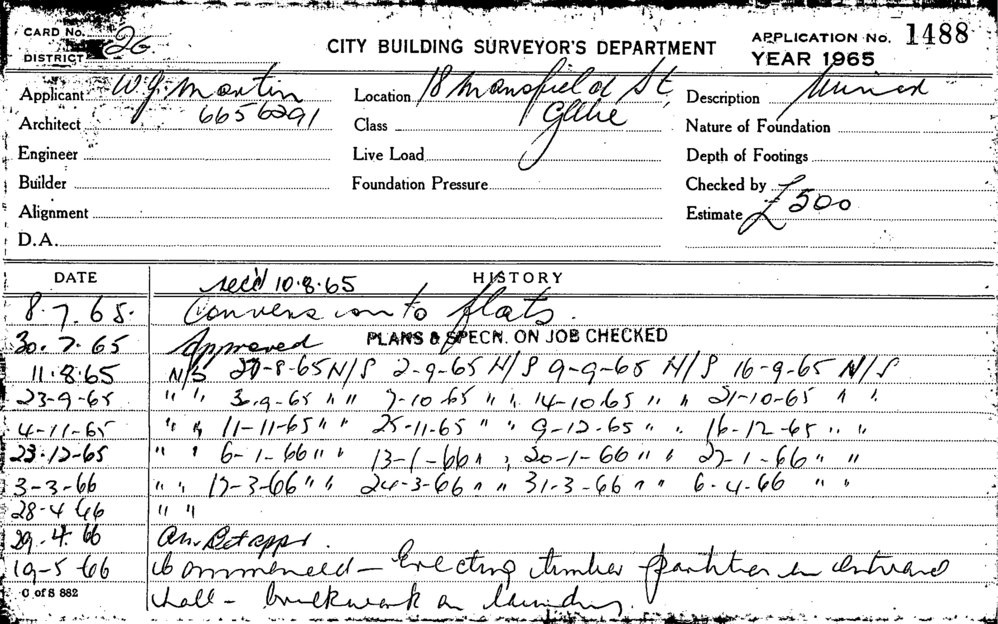 CARD No. 26 CITY BUILDING SURVEYOR'S DEPARTMENT APPLICATION No. 1488
DISTRICT YEAR 1965
Applicant W.J. Martin Location 18 Mansfield St, Description
Architect 6656291 Class Glebe Nature of Foundation
Engineer Live Load Depth of Footings
Builder Foundation Pressure Checked by
Alignment Estimate £500
D.A.
DATE HISTORY
rec'd 10.8.65
8.7.65. Conversion to flats.
30.7.65 Approved PLANS & SPECN. ON JOB CHECKED
11.8.65 N/S 8-65 N/S 2-9-65 N/S 9-9-65 N/S 16-9-65 N/S
23-9-65 " " 9-65 " " 7-10-65 " " 14-10-65 " " 21-10-65 " "
4-11-65 " " 11-11-65 " " 25-11-65 " " 9-12-65 " " 16-12-65 " "
23-12-65 " " 6-1-66 " " 13-1-66 " " 20-1-66 " " 27-1-66 " "
3-3-66 " " 17-3-66 " " 24-3-66 " " 31-3-66 " " 6-4-66 " "
28-4-66 " "
29.4.66
19-5-66 Commenced - Erecting timber partition in entrance
C of S 882
hall - brickwork on laundry.